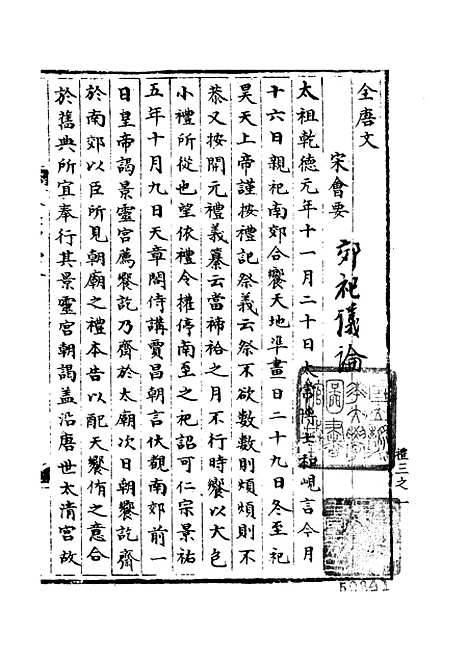 全唐文
宋會要
郊祀議論
太祖乾德元年十一月二十日太常博士和峴言今月
十六日親祀南郊合饗天地準畫日二十九日冬至祀
昊天上帝謹按禮記祭義云祭不欲數數則煩煩則不
恭又按開元禮義纂云當禘祫之月不行時饗以大包
小禮所從也望依禮令權停南至之祀詔可仁宗景祐
五年十月九日天章閣侍講賈昌朝言伏覩南郊前一
日皇帝謁景靈宮薦饗訖乃齋於太廟次日朝饗訖齋
於南郊以臣所見朝廟之禮本告以配天饗侑之意合
於舊典所宜奉行其景靈宮朝謁盖沿唐世太清宮故
禮三之一